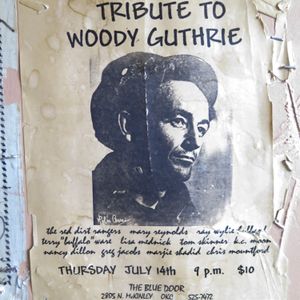 TRIBUTE TO
WOODY GUTHRIE
the red dirt rangers mary reynolds ray wylie
terry "buffalo" ware lisa mednick tom skinner k.c. moon
nancy dillon greg jacobs marjie shadid chris mountford
THURSDAY JULY 14th 9 p.m. $10
THE BLUE DOOR
2805 N. McKINLEY OKC 525-7472